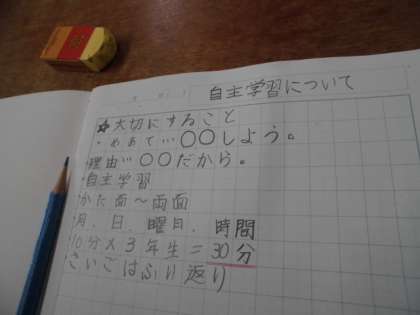 自主学習について
☆大切にすること
・めあて…〇〇しよう。
・理由…〇〇だから。
・自主学習
・かた面〜両面
・月、日、曜日、時間
・10分×3年生=30分
・さいごはふり返り